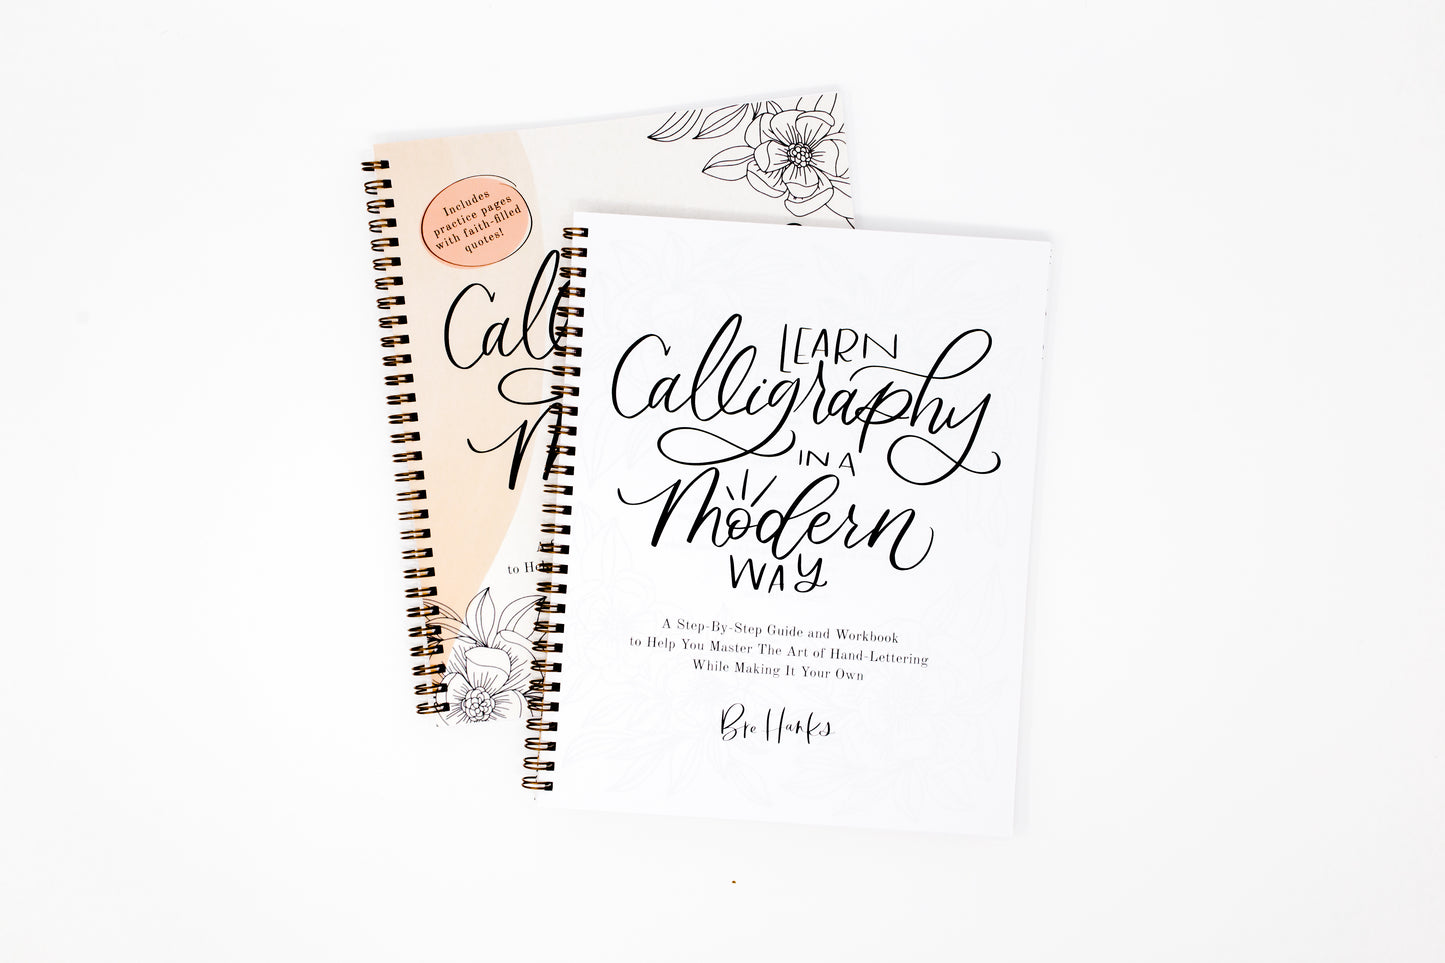 Includes
practice pages
with faith-filled
quotes!
Call
to
LEARN
Calligraphy
IN A
Modern
WAY
A Step-By-Step Guide and Workbook
to Help You Master The Art of Hand-Lettering
While Making It Your Own
Bre Hanks